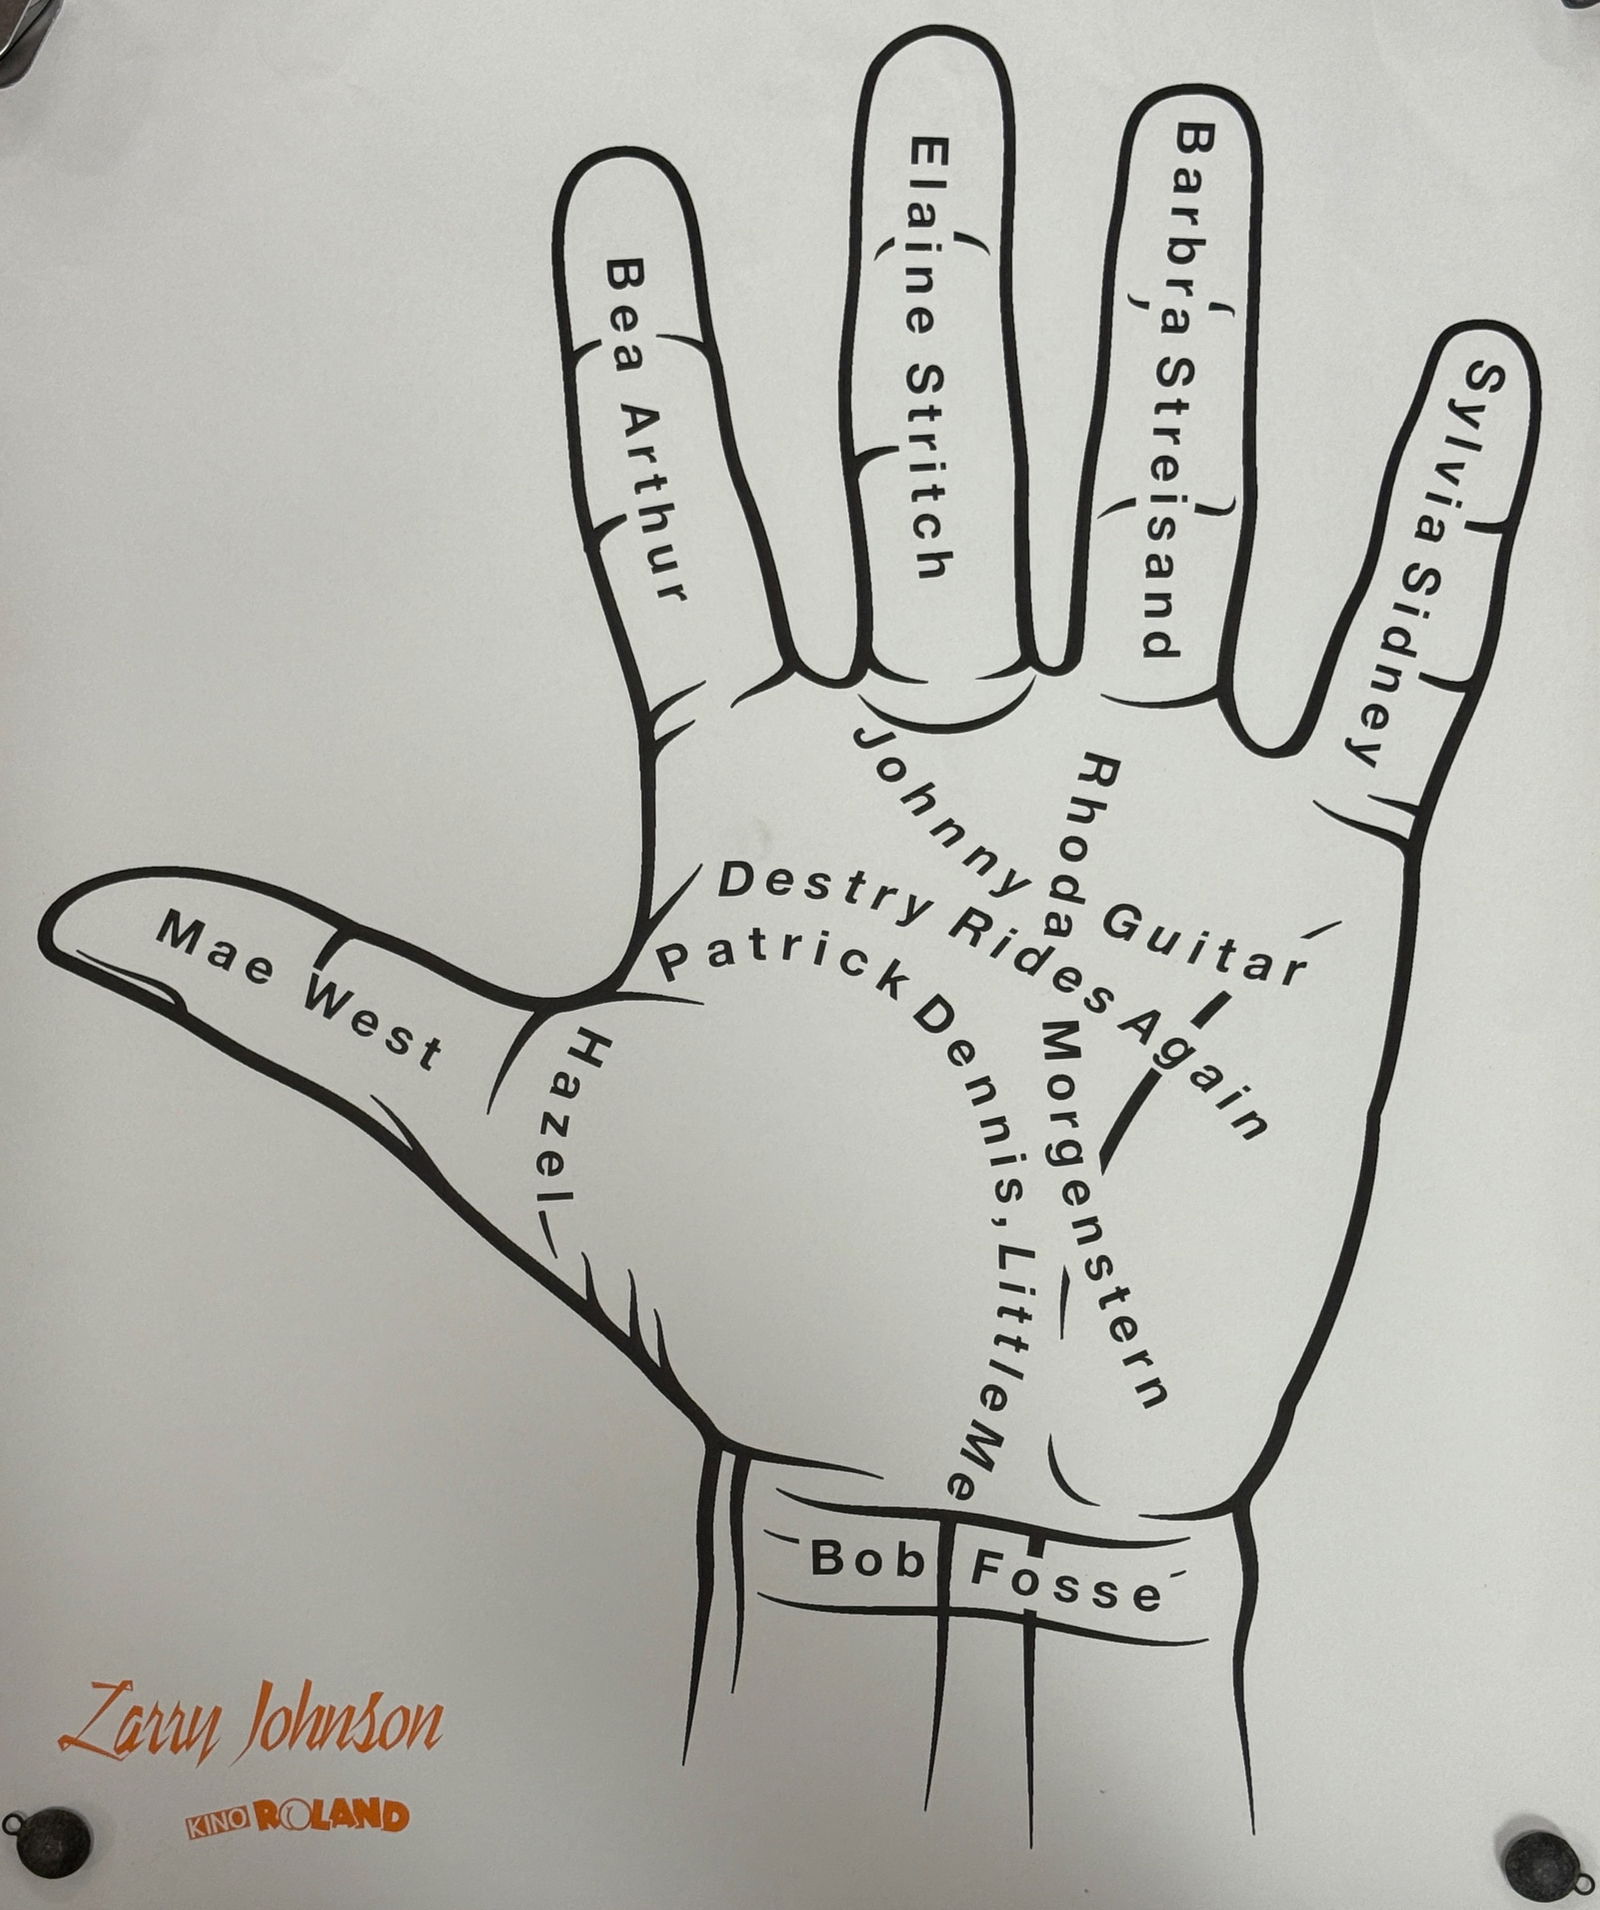 Bea Arthur
Elaine Stritch
Barbra Streisand
Sylvia Sidney
Mae West
Johnny Guitar
Rhoda Morgenstern
Destry Rides Again
Patrick Dennis, Little Me
Hazel
Bob Fosse
Larry Johnson
KINO ROLAND